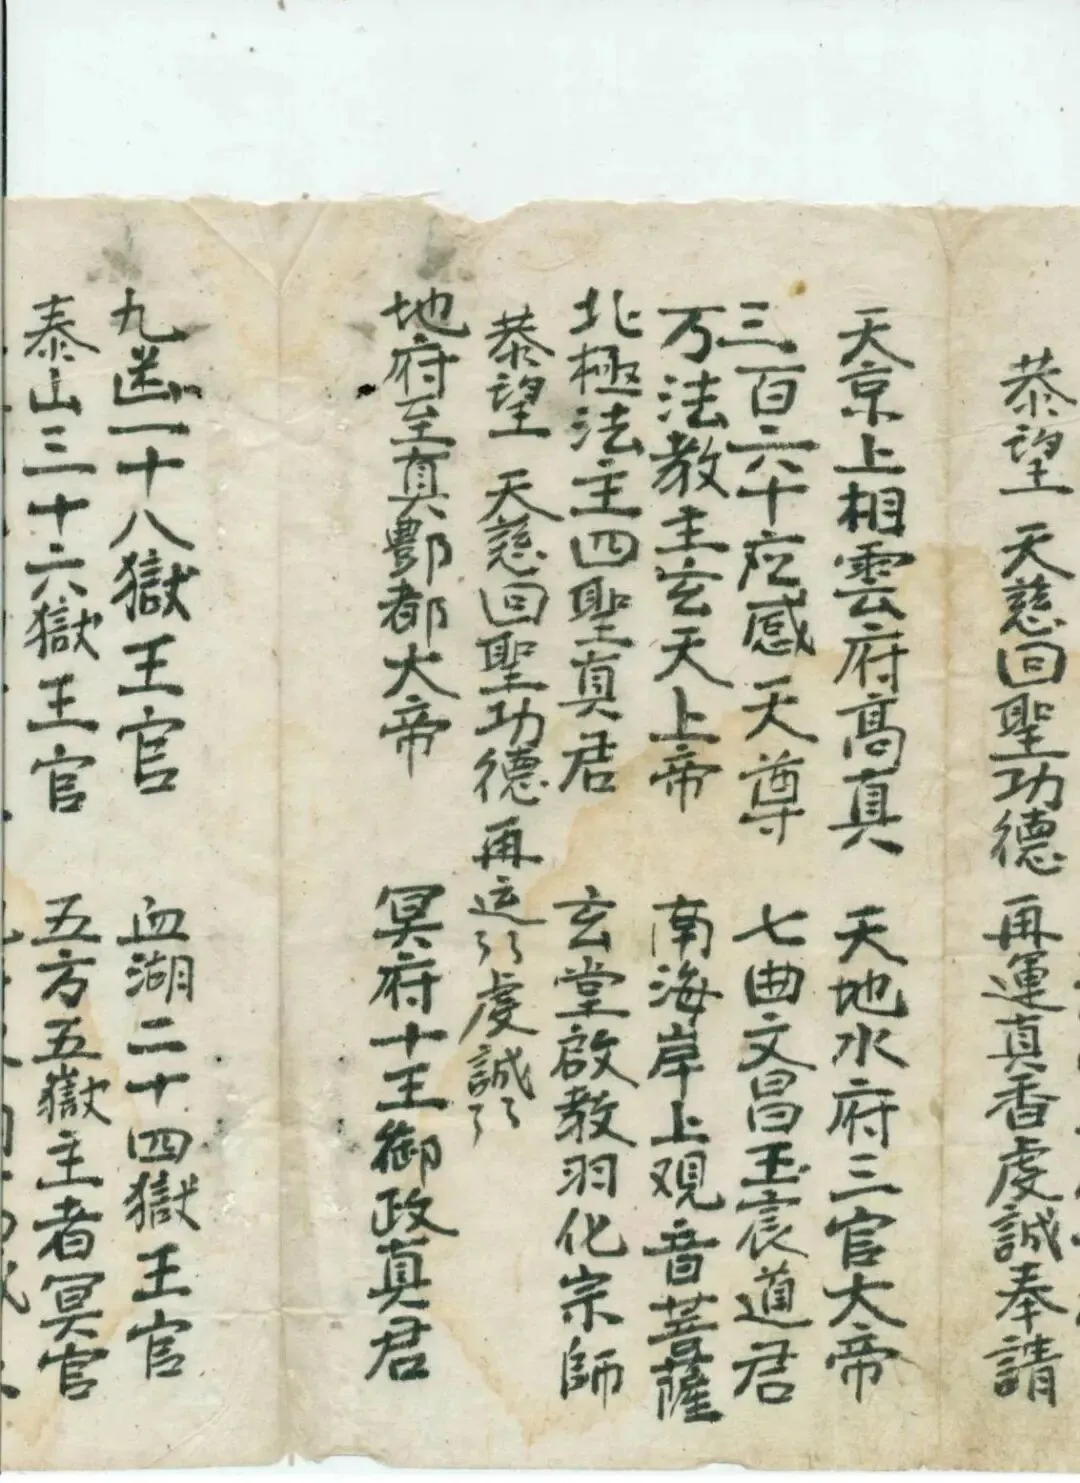 恭望 天慈回聖功德 再運真香虔誠奉請
天京上相雲府高真 天地水府三官大帝
三百六十应感天尊 七曲文昌玉宸道君
万法教主玄天上帝 南海岸上观音菩薩
北極法主四聖真君 玄堂啟教羽化宗師
恭望 天慈回聖功德 再运 虔誠
地府至真酆都大帝 冥府十王御政真君
九幽一十八獄王官 血湖二十四獄王官
泰山三十六獄王官 五方五嶽主者冥官